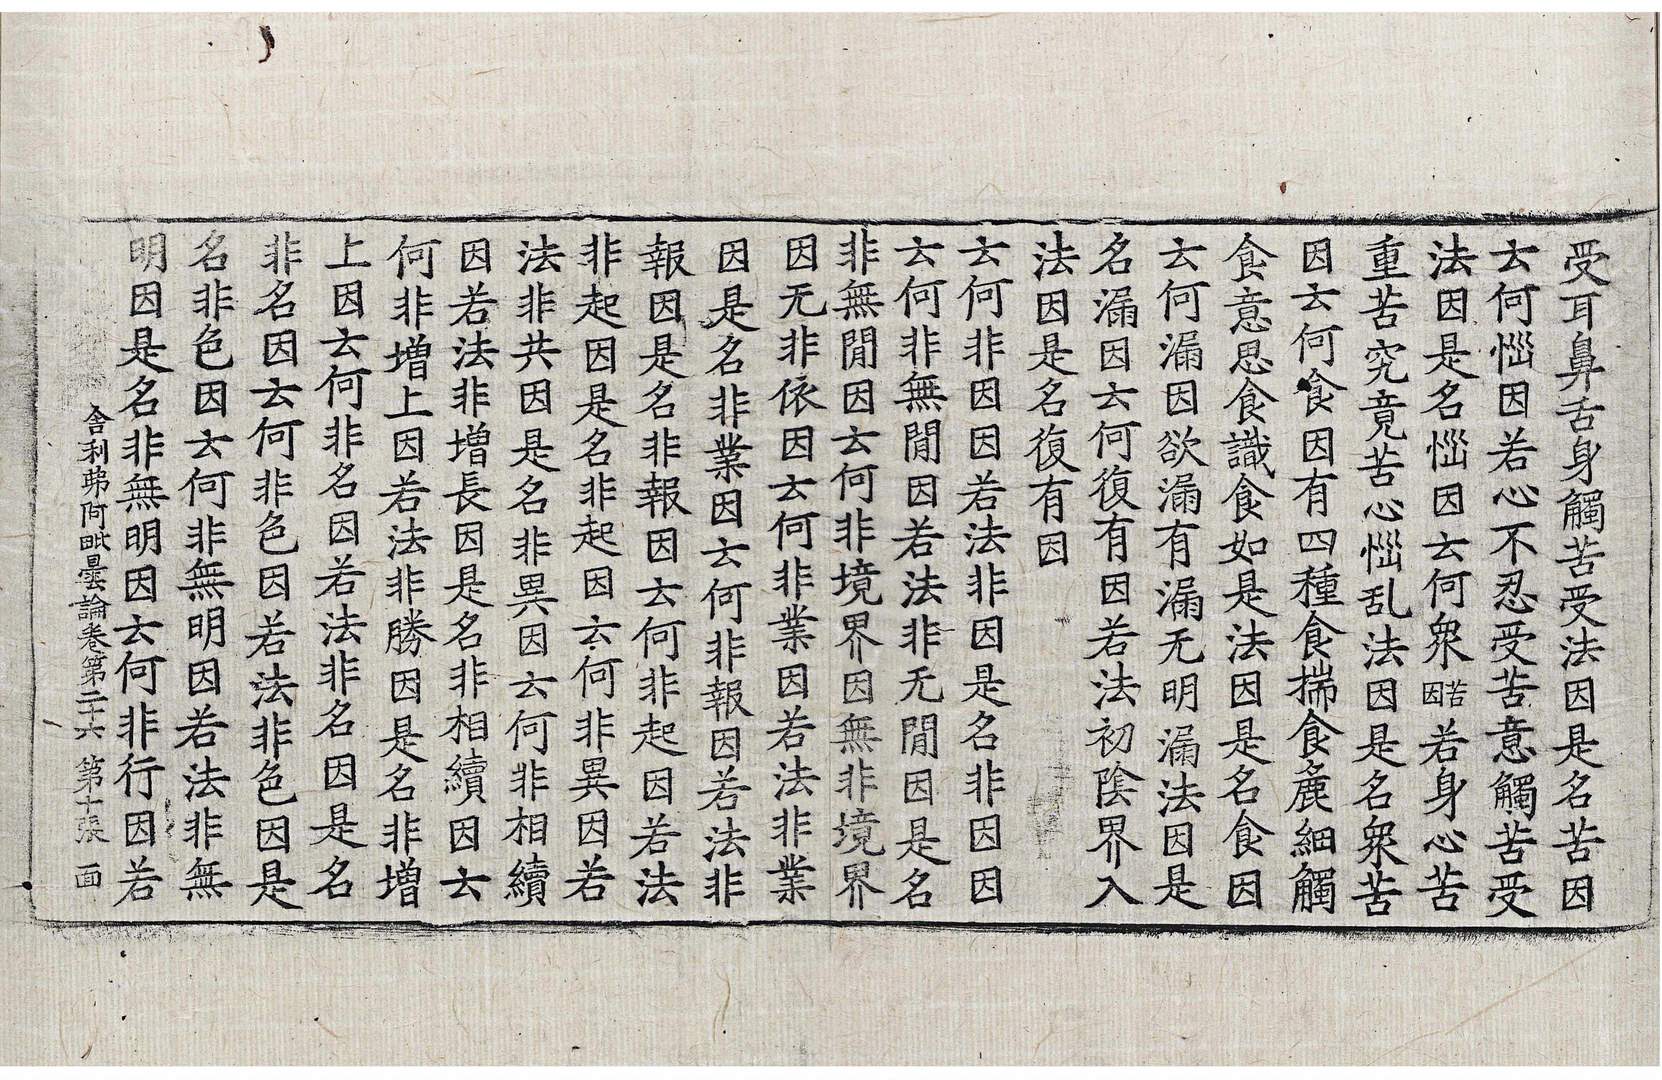 受耳鼻舌身觸苦受法因是名苦因
云何惱因若心不忍受苦意觸苦受
法因是名惱因云何衆苦因若身心苦
重苦究竟苦心惱乱法因是名衆苦
因云何食因有四種食揣食麁細觸
食意思食識食如是法因是名食因
云何漏因欲漏有漏无明漏法因是
名漏因云何復有因若法初陰界入
法因是名復有因
云何非因因若法非因是名非因因
云何非無閒因若法非无閒因是名
非無閒因云何非境界因無非境界
因无非依因云何非業因若法非業
因是名非業因云何非報因若法非
報因是名非報因云何非起因若法
非起因是名非起因云何非異因若
法非共因是名非異因云何非相續
因若法非增長因是名非相續因云
何非增上因若法非勝因是名非增
上因云何非名因若法非名因是名
非名因云何非色因若法非色因是
名非色因云何非無明因若法非無
明因是名非無明因云何非行因若
舍利弗阿毗曇論卷第二十六 第十張 面